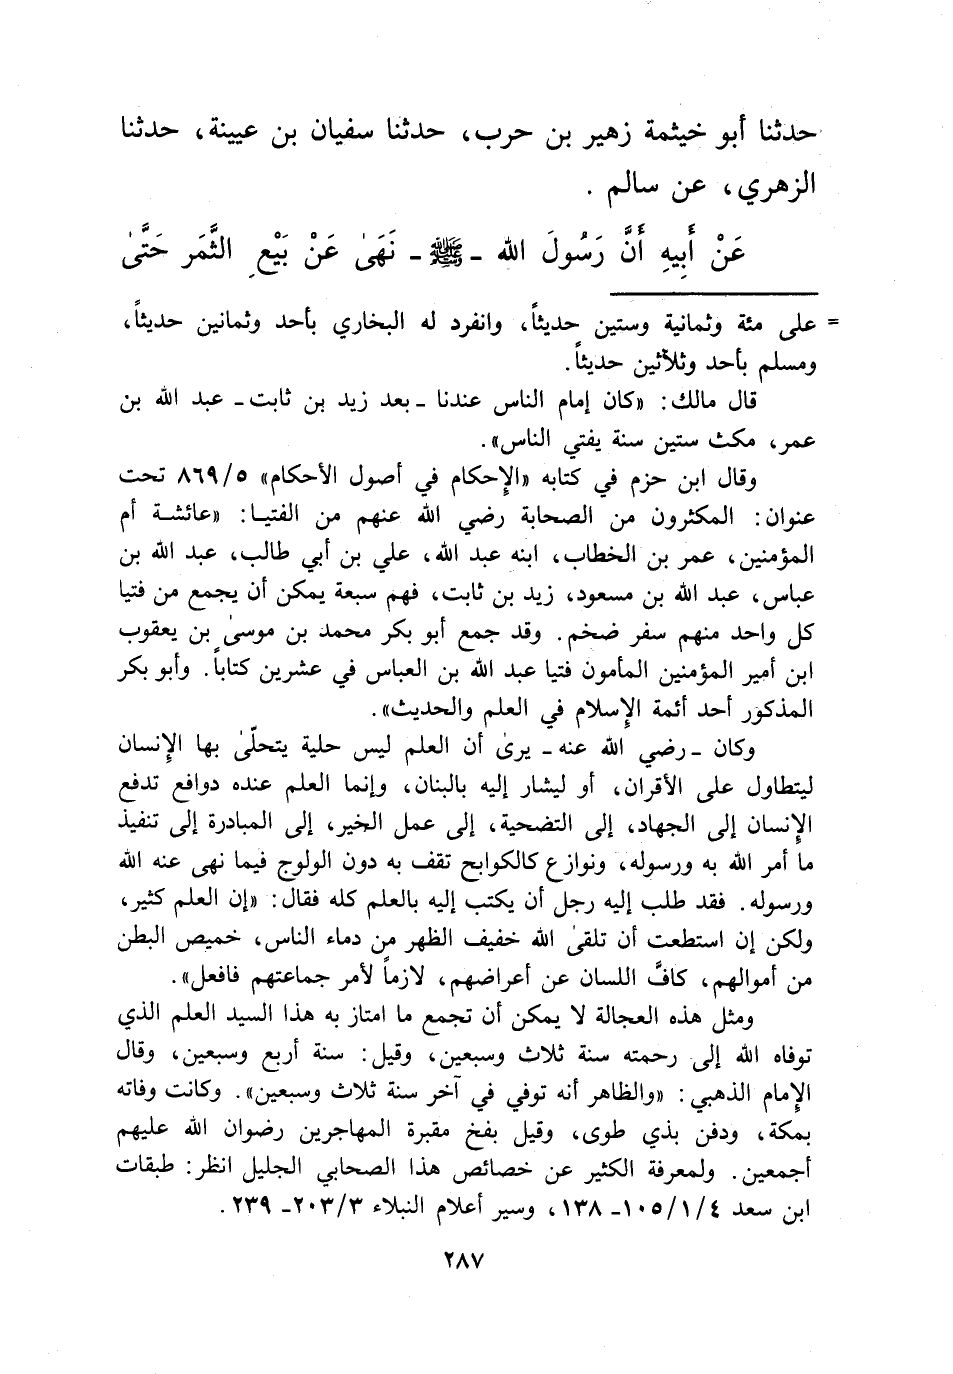 حدثنا أبو خيثمة زهير بن حرب، حدثنا سفيان بن عيينة، حدثنا
الزهري، عن سالم .
عَنْ أَبِيهِ أَنَّ رَسُولَ الله - ﷺ - نَهَىٰ عَنْ بَيْعِ الثَّمَرِ حَتَّىٰ
= على مئة وثمانية وستين حديثاً، وانفرد له البخاري بأحد وثمانين حديثاً،
ومسلم بأحد وثلاثين حديثاً.
قال مالك: «كان إمام الناس عندنا - بعد زيد بن ثابت - عبد الله بن
عمر، مكث ستين سنة يفتي الناس».
وقال ابن حزم في كتابه «الإحكام في أصول الأحكام» ٨٦٩/٥ تحت
عنوان: المكثرون من الصحابة رضي الله عنهم من الفتيا: «عائشة أم
المؤمنين، عمر بن الخطاب، ابنه عبد الله، علي بن أبي طالب، عبد الله بن
عباس، عبد الله بن مسعود، زيد بن ثابت، فهم سبعة يمكن أن يجمع من فتيا
كل واحد منهم سفر ضخم. وقد جمع أبو بكر محمد بن موسىٰ بن يعقوب
ابن أمير المؤمنين المأمون فتيا عبد الله بن العباس في عشرين كتاباً. وأبو بكر
المذكور أحد أئمة الإسلام في العلم والحديث».
وكان - رضي الله عنه - يرىٰ أن العلم ليس حلية يتحلّىٰ بها الإنسان
ليتطاول على الأقران، أو ليشار إليه بالبنان، وإنما العلم عنده دوافع تدفع
الإنسان إلى الجهاد، إلى التضحية، إلى عمل الخير، إلى المبادرة إلى تنفيذ
ما أمر الله به ورسوله، ونوازع كالكوابح تقف به دون الولوج فيما نهى عنه الله
ورسوله. فقد طلب إليه رجل أن يكتب إليه بالعلم كله فقال: «إن العلم كثير،
ولكن إن استطعت أن تلقىٰ الله خفيف الظهر من دماء الناس، خميص البطن
من أموالهم، كافَّ اللسان عن أعراضهم، لازماً لأمر جماعتهم فافعل».
ومثل هذه العجالة لا يمكن أن تجمع ما امتاز به هذا السيد العلم الذي
توفاه الله إلى رحمته سنة ثلاث وسبعين، وقيل: سنة أربع وسبعين، وقال
الإمام الذهبي: «والظاهر أنه توفي في آخر سنة ثلاث وسبعين». وكانت وفاته
بمكة، ودفن بذي طوى، وقيل بفخ مقبرة المهاجرين رضوان الله عليهم
أجمعين. ولمعرفة الكثير عن خصائص هذا الصحابي الجليل انظر: طبقات
ابن سعد ٤/ ١/ ١٠٥- ١٣٨، وسير أعلام النبلاء ٢٠٣/٣- ٢٣٩.
٢٨٧